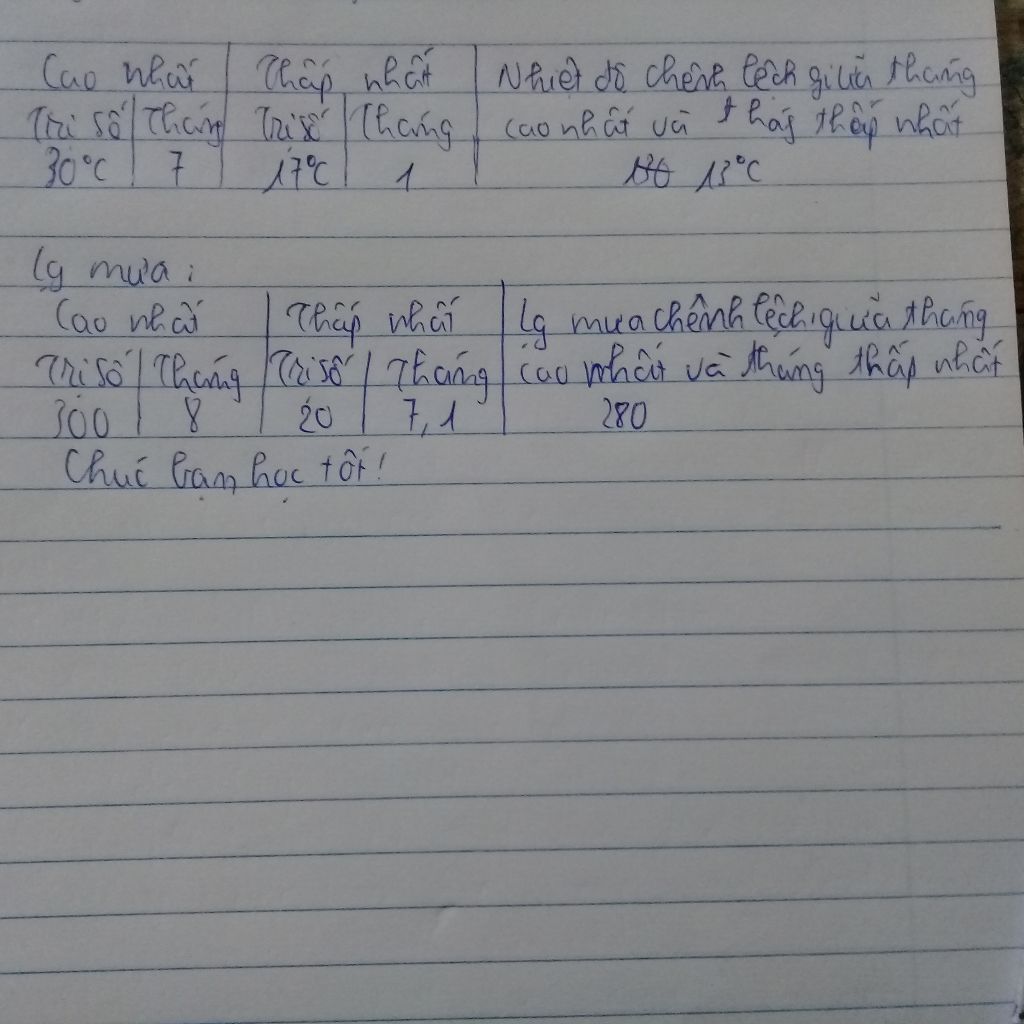 Cao nhất Thấp nhất Nhiệt độ chênh lệch giữa tháng
Trị số Tháng Trị số Tháng cao nhất và thág thấp nhất
30°C 7 17°C 1 13°C
Lg mưa:
Cao nhất Thấp nhất Lg mưa chênh lệch giữa tháng
Trị số Tháng Trị số Tháng cao nhất và tháng thấp nhất
300 8 20 7,1 280
Chúc bạn học tốt!